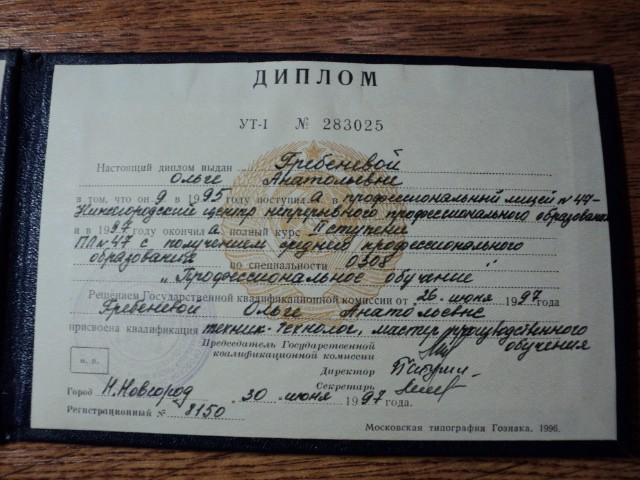 ДИПЛОМ
УТ-I № 283025
Настоящий диплом выдан Гребеневой
Ольге Анатольевне
в том, что он а в 1995 году поступил а в профессиональный лицей №47-
Нижегородский центр непрерывного профессионального образования
и в 1997 году окончил а полный курс II ступени
ПЛ №47 с получением среднего профессионального
образования по специальности 0308
„Профессиональное обучение"
Решением Государственной квалификационной комиссии от 26 июня 1997 года
Гребеневой Ольге Анатольевне
присвоена квалификация техник-технолог, мастер производственного
обучения
Председатель Государственной
квалификационной комиссии
Директор
Секретарь
м. п.
Город Н.Новгород 30 июня 1997 года.
Регистрационный № 8150
Московская типография Гознака. 1996.